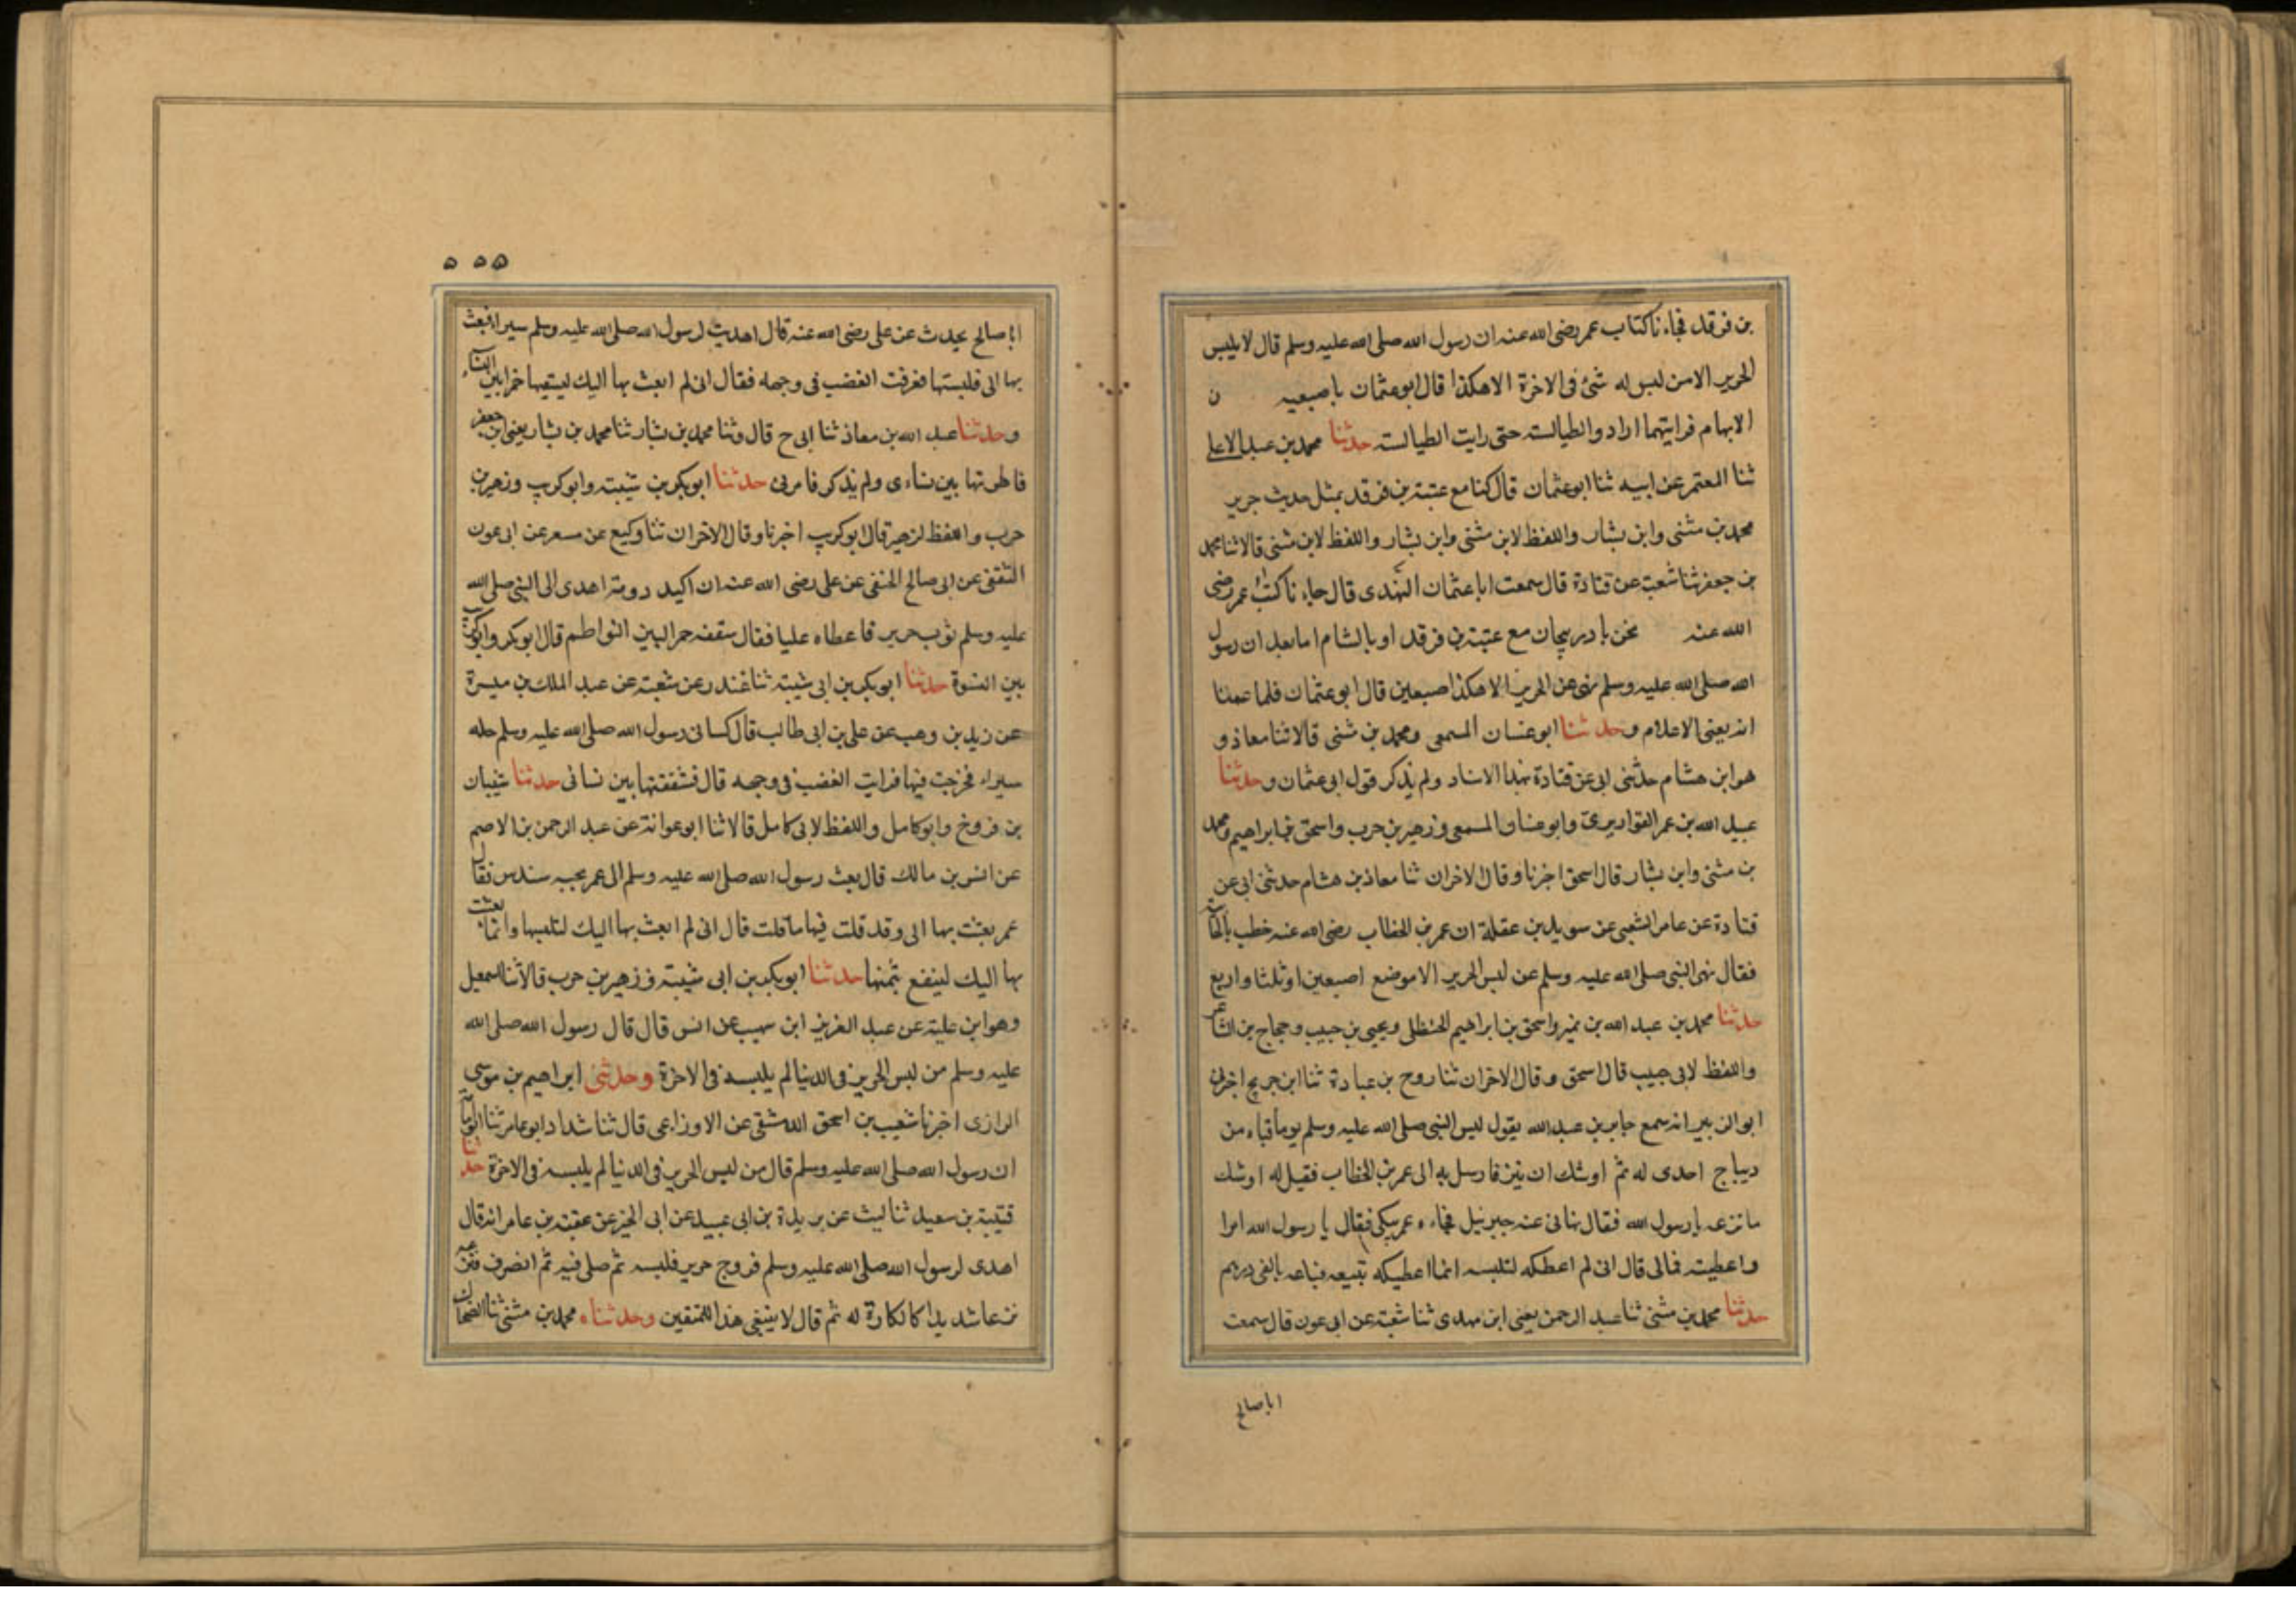 بن فرقد فجاءنا كتاب عمر رضى الله عنه ان رسول الله صلى الله عليه وسلم قال لا يلبس
الحرير الا من ليس له شئ فى الاخرة الا هكذا قال ابو عثمان باصبعيه ن
الابهام فرايتهما ازاد والطيالسته حتى رايت الطيالسته حدثنا محمد بن عبد الاعلى
ثنا المعتمر عن ابيه ثنا ابو عثمان قال كنا مع عتبة بن فرقد بمثل حديث جرير
محمد بن مثنى وابن بشار واللفظ لابن مثنى وابن بشار واللفظ لابن مثنى قالا ثنا محمد
بن جعفر ثنا شعبة عن قتادة قال سمعت ابا عثمان النهدى قال جاءنا كتاب عمر رضى
الله عنه نحن بادربيجان مع عتبة بن فرقد او بالشام اما بعد ان رسول
الله صلى الله عليه وسلم نهى عن الحرير الا هكذا اصبعين قال ابو عثمان فلما
انه يعنى الاعلام وحدثنا ابو غسان المسمعى ومحمد بن مثنى قالا ثنا معاذ و
هو ابن هشام حدثنى ابى عن قتادة بهذا الاسناد ولم يذكر قول ابى عثمان وحدثنا
عبيد الله بن عمر القواريرى وابو المسمعى وزهير بن حرب واسحق بن ابراهيم ومحمد
بن مثنى وابن بشار قال اسحق اخبرنا وقال الاخران ثنا معاذ بن هشام حدثنى ابى عن
قتادة عن عامر الشعبى عن سويد بن عقلة ان عمر بن الخطاب رضى الله عنه خطب
فقال نهى النبى صلى الله عليه وسلم عن لبس الحرير الا موضع اصبعين او ثلثا واربع
حدثنا محمد بن عبد الله بن نمير واسحق بن ابراهيم الحنظلى ويحيى بن حبيب وحجاج بن الشاعر
واللفظ لابى حبيب قال اسحق وقال الاخران ثنا روح بن عبادة ثنا ابن جريج اخبرنى
ابو الزبير انه سمع جابر بن عبد الله يقول لبس النبى صلى الله عليه وسلم يوما قباء من
ديباج اهدى له ثم اوشك ان ينز فارسل به الى عمر بن الخطاب فقيل له اوشك
ما نزعه يا رسول الله فقال نهانى عنه جبرئيل فجاءه عمر يبكى فقال يا رسول الله امرا
واعطيته فمالى قال انى لم اعطكه لتلبسه انما اعطيكه تبيعه فباعه بالفى درهم
حدثنا محمد بن مثنى ثنا عبد الرحمن يعنى ابن مهدى ثنا شعبة عن ابى عون قال سمعت
ابا صالح
۵۵۵
ابا صالح يحدث عن على رضى الله عنه قال اهديت لرسول الله صلى الله عليه وسلم سيراء فبعث
بها الى فلبستها فعرفت الغضب فى وجهه فقال انى لم ابعث بها اليك خمرا بين النساء
وحدثنا عبد الله بن معاذ ثنا ابى ح قال وثنا محمد بن بشار ثنا محمد بن بشار يعنى بن جعفر
فاطرتها بين نساءى ولم يذكر فامرنى حدثنا ابو بكر بن شيبة وابو كريب وزهير بن
حرب واللفظ لزهير قال ابو كريب اخبرنا وقال الاخران ثنا وكيع عن مسعر عن ابى عون
الثقفى عن ابى صالح الحنفى عن على رضى الله عنه ان اكيد دومة اهدى الى النبى صلى الله
عليه وسلم ثوب حرير فاعطاه عليا فقال شققه خمرا بين الفواطم قال ابو بكر وابو كريب
بين النسوة حدثنا ابو بكر بن ابى شيبة ثنا غندر عن شعبة عن عبد الملك بن ميسرة
عن زيد بن وهب عن على بن ابى طالب قال كسانى رسول الله صلى الله عليه وسلم حله
سيراء فخرجت فيها فرايت الغضب فى وجهه قال فشققتها بين نسائى حدثنا شيبان
بن فروخ وابو كامل واللفظ لابى كامل قالا ثنا ابو عوانة عن عبد الرحمن بن الاصم
عن انس بن مالك قال بعث رسول الله صلى الله عليه وسلم الى عمر بجبه سندس فقال
عمر بعثت بها الى وقد قلت فيها ما قلت قال انى لم ابعث بها اليك لتلبسها وانما بعثت
بها اليك لينفع بثمنها حدثنا ابو بكر بن ابى شيبة وزهير بن حرب قالا ثنا اسمعيل
وهو ابن علية عن عبد العزيز ابن سهيب عن انس قال قال رسول الله صلى الله
عليه وسلم من لبس الحرير فى الدنيا لم يلبسه فى الاخرة وحدثنى ابراهيم بن موسى
الرازى اخبرنا شعيب بن اسحق الدمشقى عن الاوزاعى قال ثنا شداد ابو عامر ثنا ابو امامة
ان رسول الله صلى الله عليه وسلم قال من لبس الحرير فى الدنيا لم يلبسه فى الاخرة حدثنا
قتيبة بن سعيد ثنا ليث عن بريدة بن ابى عبيد عن ابى الخير عن عقبة بن عامر انه قال
اهدى لرسول الله صلى الله عليه وسلم فروج حرير فلبسه ثم صلى فيه ثم انصرف فنزعه
نزعا شديدا كالكارة له ثم قال لا ينبغى هذا للمتقين وحدثناه محمد بن مثنى ثنا الضحاك